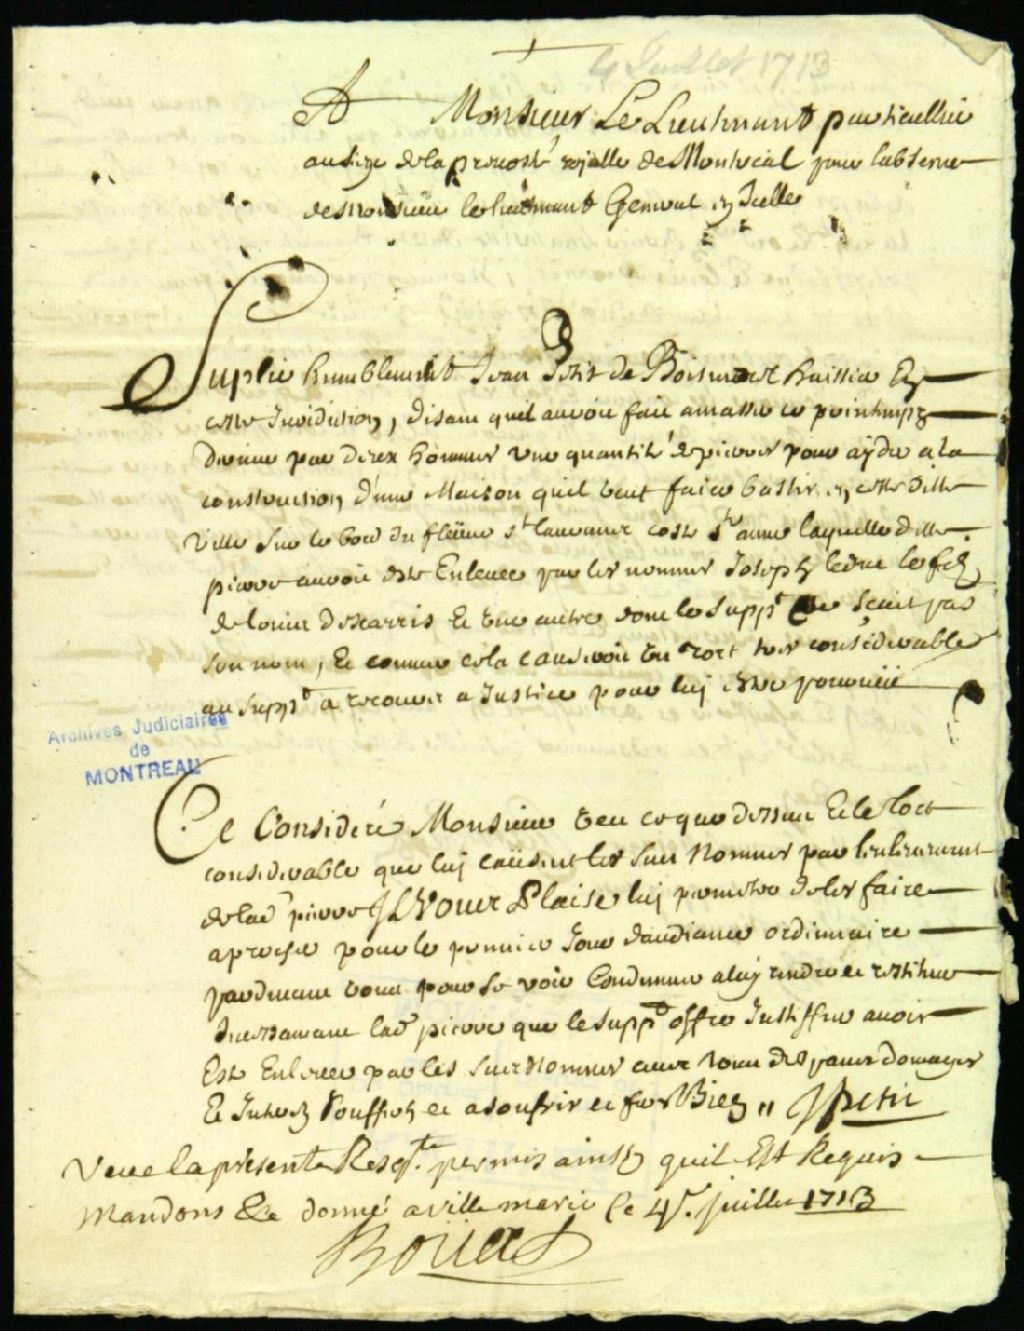 4 Juillet 1713
A Monsieur Le Lieutenant particullier
au siege de la prevosté roïalle de Montreal pour labsence
de Monsieur le lieutenant General en Icelle
Suplie humblement Jean Petit de Boismorel huissier En
cette Juridiction, disant quil auroit fait amasser ce printemps
dernier par deux hommes une quantité de pierres pour aÿder a la
construction d'une Maison quil veut faire bastir en cette ditte
Ville sur le bord du fleüve st laurence coste ste anne laquelle ditte
pierre auroit esté Enlevee par les nommez Joseph leduc le fils
de louis descarris Et une autre dont le suppt ne sçait pas
son nom, Et comme cela causeroit un tort tres considerable
au suppt a recours a Justice pour luj estre pourveü
Archives Judiciaires
de
MONTREAL
Ce Consideré Monsieur veu ce que dessus Et le tort
considerable que luj caüsent les sus Nommez par lenlevement
de lad pierre Il Vous Plaise luj permettre de les faire
aprocher pour le premier Jour daudiance ordinnaire
pardevant vous pour se voir Condamner a luÿ rendre et restituer
lad pierre que le suppt offre Justiffier avoir
Esté Enlevee par les sus Nommez avec tous despans domages
Et Interest souffers et a soufrir et fer Bien " JPetit
Veue la présente Reqte. permis ainsy quil Est Requis
Mandons &a donné a ville marie le 4e. juillet 1713